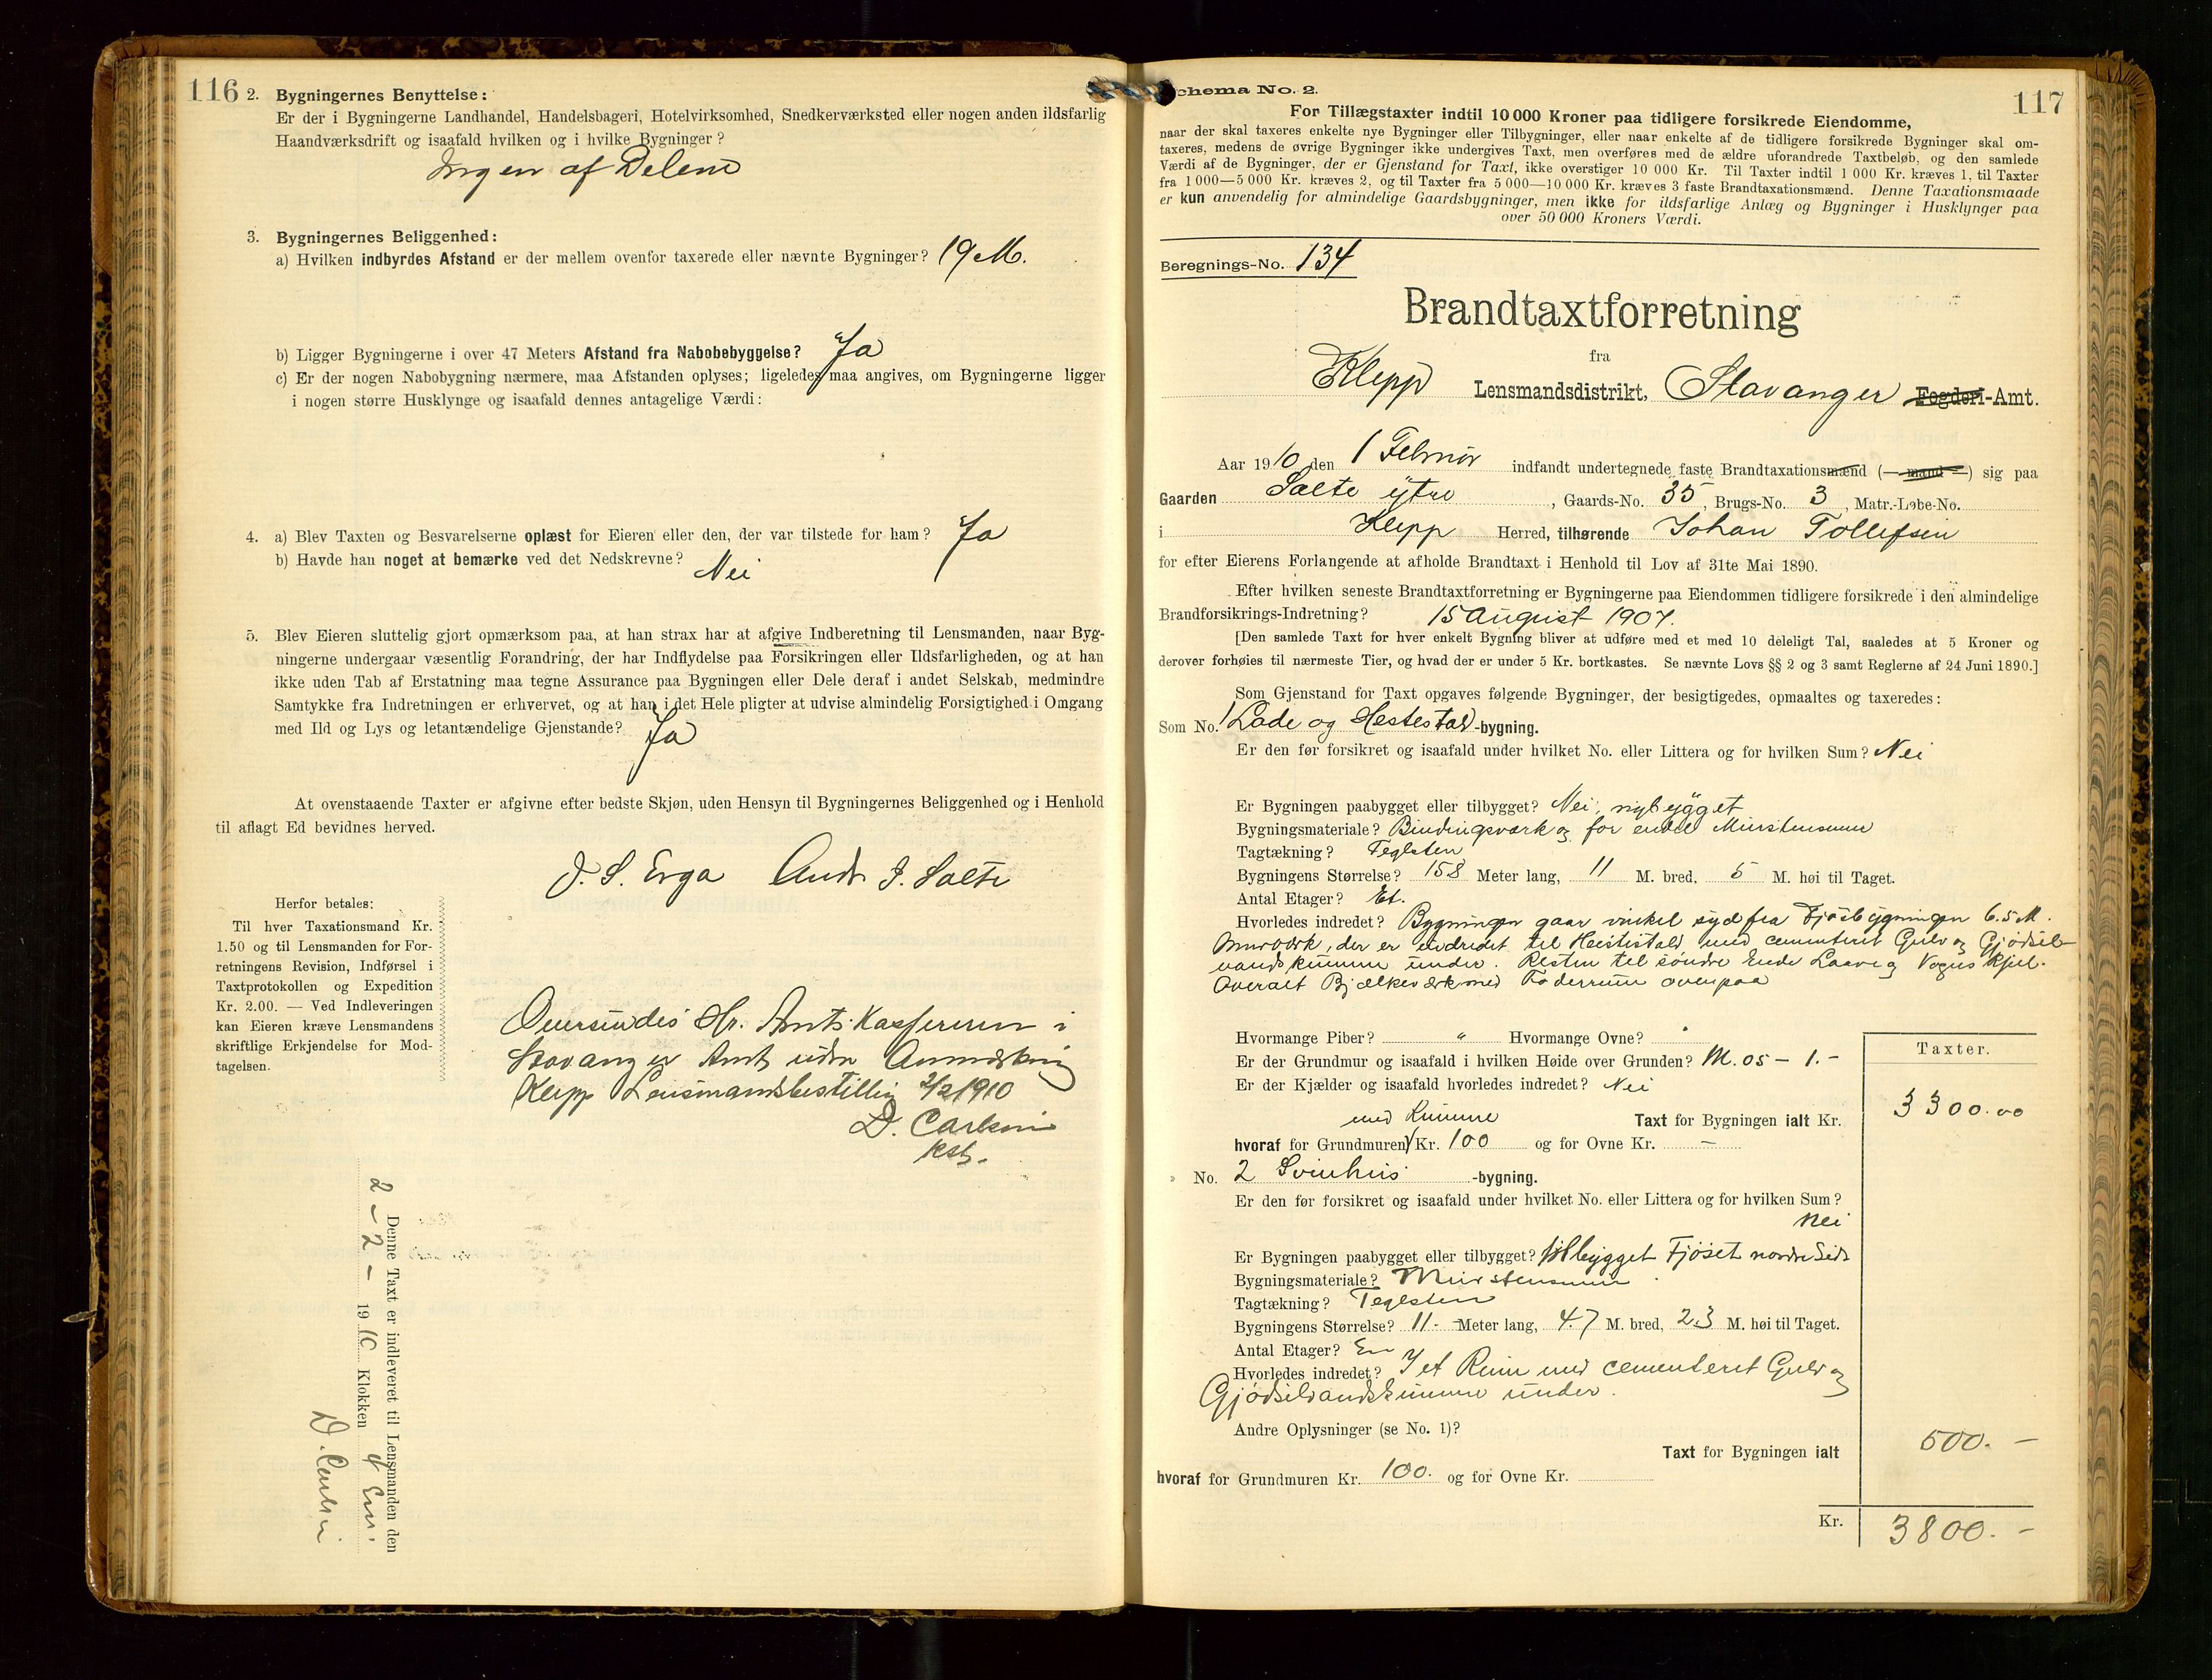 116
2. Bygningernes Benyttelse:
Er der i Bygningerne Landhandel, Handelsbageri, Hotelvirksomhed, Snedkerværksted eller nogen anden ildsfarlig
Haandværksdrift og isaafald hvilken og i hvilke Bygninger?
Ingen af Delene
3. Bygningernes Beliggenhed:
a) Hvilken indbyrdes Afstand er der mellem ovenfor taxerede eller nævnte Bygninger? 19 M.
b) Ligger Bygningerne i over 47 Meters Afstand fra Nabobebyggelse? Ja
c) Er der nogen Nabobygning nærmere, maa Afstanden oplyses; ligeledes maa angives, om Bygningerne ligger
i nogen større Husklynge og isaafald dennes antagelige Værdi:
4. a) Blev Taxten og Besvarelserne oplæst for Eieren eller den, der var tilstede for ham? Ja
b) Havde han noget at bemærke ved det Nedskrevne? Nei
5. Blev Eieren sluttelig gjort opmærksom paa, at han strax har at afgive Indberetning til Lensmanden, naar Byg-
ningerne undergaar væsentlig Forandring, der har Indflydelse paa Forsikringen eller Ildsfarligheden, og at han
ikke uden Tab af Erstatning maa tegne Assurance paa Bygningen eller Dele deraf i andet Selskab, medmindre
Samtykke fra Indretningen er erhvervet, og at han i det Hele pligter at udvise almindelig Forsigtighed i Omgang
med Ild og Lys og letantændelige Gjenstande? Ja
At ovenstaaende Taxter er afgivne efter bedste Skjøn, uden Hensyn til Bygningernes Beliggenhed og i Henhold
til aflagt Ed bevidnes herved.
J. S. Erga Andr. J. Salte
Herfor betales:
Til hver Taxationsmand Kr.
1.50 og til Lensmanden for For-
retningens Revision, Indførsel i
Taxtprotokollen og Expedition
Kr. 2.00. — Ved Indleveringen
kan Eieren kræve Lensmandens
skriftlige Erkjendelse for Mod-
tagelsen.
Oversendes Hr. Amtskassereren i
Stavanger Amt uden Anmærkning
Klepp Lensmandsbestilling 2/2 1910
D. Carlsen
kst.
Denne Taxt er indleveret til Lensmanden den
2 - 2 - 1910 Klokken
D. Carlsen
Schema No. 2.
117
For Tillægstaxter indtil 10 000 Kroner paa tidligere forsikrede Eiendomme,
naar der skal taxeres enkelte nye Bygninger eller Tilbygninger, eller naar enkelte af de tidligere forsikrede Bygninger skal om-
taxeres, medens de øvrige Bygninger ikke undergives Taxt, men overføres med de ældre uforandrede Taxtbeløb, og den samlede
Værdi af de Bygninger, der er Gjenstand for Taxt, ikke overstiger 10 000 Kr. Til Taxter indtil 1 000 Kr. kræves 1, til Taxter
fra 1 000—5 000 Kr. kræves 2, og til Taxter fra 5 000—10 000 Kr. kræves 3 faste Brandtaxationsmænd. Denne Taxationsmaade
er kun anvendelig for almindelige Gaardsbygninger, men ikke for ildsfarlige Anlæg og Bygninger i Husklynger paa
over 50 000 Kroners Værdi.
Beregnings-No. 134
Brandtaxtforretning
fra
Klepp Lensmandsdistrikt, Stavanger Fogderi-Amt.
Aar 1910 den 1 Februar indfandt undertegnede faste Brandtaxationsmænd (— mand —) sig paa
Gaarden Salte ytre, Gaards-No. 35, Brugs-No. 3, Matr.-Løbe-No.
i Klepp Herred, tilhørende Johan Tollefsen
for efter Eierens Forlangende at afholde Brandtaxt i Henhold til Lov af 31te Mai 1890.
Efter hvilken seneste Brandtaxtforretning er Bygningerne paa Eiendommen tidligere forsikrede i den almindelige
Brandforsikrings-Indretning? 15 August 1907.
[Den samlede Taxt for hver enkelt Bygning bliver at udføre med et med 10 deleligt Tal, saaledes at 5 Kroner og
derover forhøies til nærmeste Tier, og hvad der er under 5 Kr. bortkastes. Se nævnte Lovs §§ 2 og 3 samt Reglerne af 24 Juni 1890.]
Som Gjenstand for Taxt opgaves følgende Bygninger, der besigtigedes, opmaaltes og taxeredes:
Som No. 1 Lade og Hestestald-bygning.
Er den før forsikret og isaafald under hvilket No. eller Littera og for hvilken Sum? Nei
Er Bygningen paabygget eller tilbygget? Nei, nybygget
Bygningsmateriale? Bindingsværk og for endel Murstensmur
Tagtækning? Teglsten
Bygningens Størrelse? 158 Meter lang, 11 M. bred, 5 M. høi til Taget.
Antal Etager? Et.
Hvorledes indredet? Bygningen gaar vinkel syd fra Fjøsbygningen 6.5 M.
Murværk, der er indredet til Hestestald med cementeret Gulv og Gjødsel-
vandskumme under. Resten til søndre Ende Laave og Vognskjul.
Overalt Bjælkeværk med Foderrum ovenpaa
Hvormange Piber? " Hvormange Ovne? "
Er der Grundmur og isaafald i hvilken Høide over Grunden? M. 05 - 1.-
Taxter.
Er der Kjælder og isaafald hvorledes indredet? Nei
med Kumme Taxt for Bygningen ialt Kr. 3300.00
hvoraf for Grundmuren Kr. 100 og for Ovne Kr. —
No. 2 Svinhus-bygning.
Er den før forsikret og isaafald under hvilket No. eller Littera og for hvilken Sum?
Nei
Er Bygningen paabygget eller tilbygget? tilbygget Fjøset nordre Side
Bygningsmateriale? Murstensmur
Tagtækning? Teglsten
Bygningens Størrelse? 11.- Meter lang, 4.7 M. bred, 2.3 M. høi til Taget.
Antal Etager? En
Hvorledes indredet? I et Rum med cementeret Gulv og
Gjødselvandskumme under.
Andre Oplysninger (se No. 1)?
Taxt for Bygningen ialt 500. -
hvoraf for Grundmuren Kr. 100. og for Ovne Kr.
Kr. 3800. -